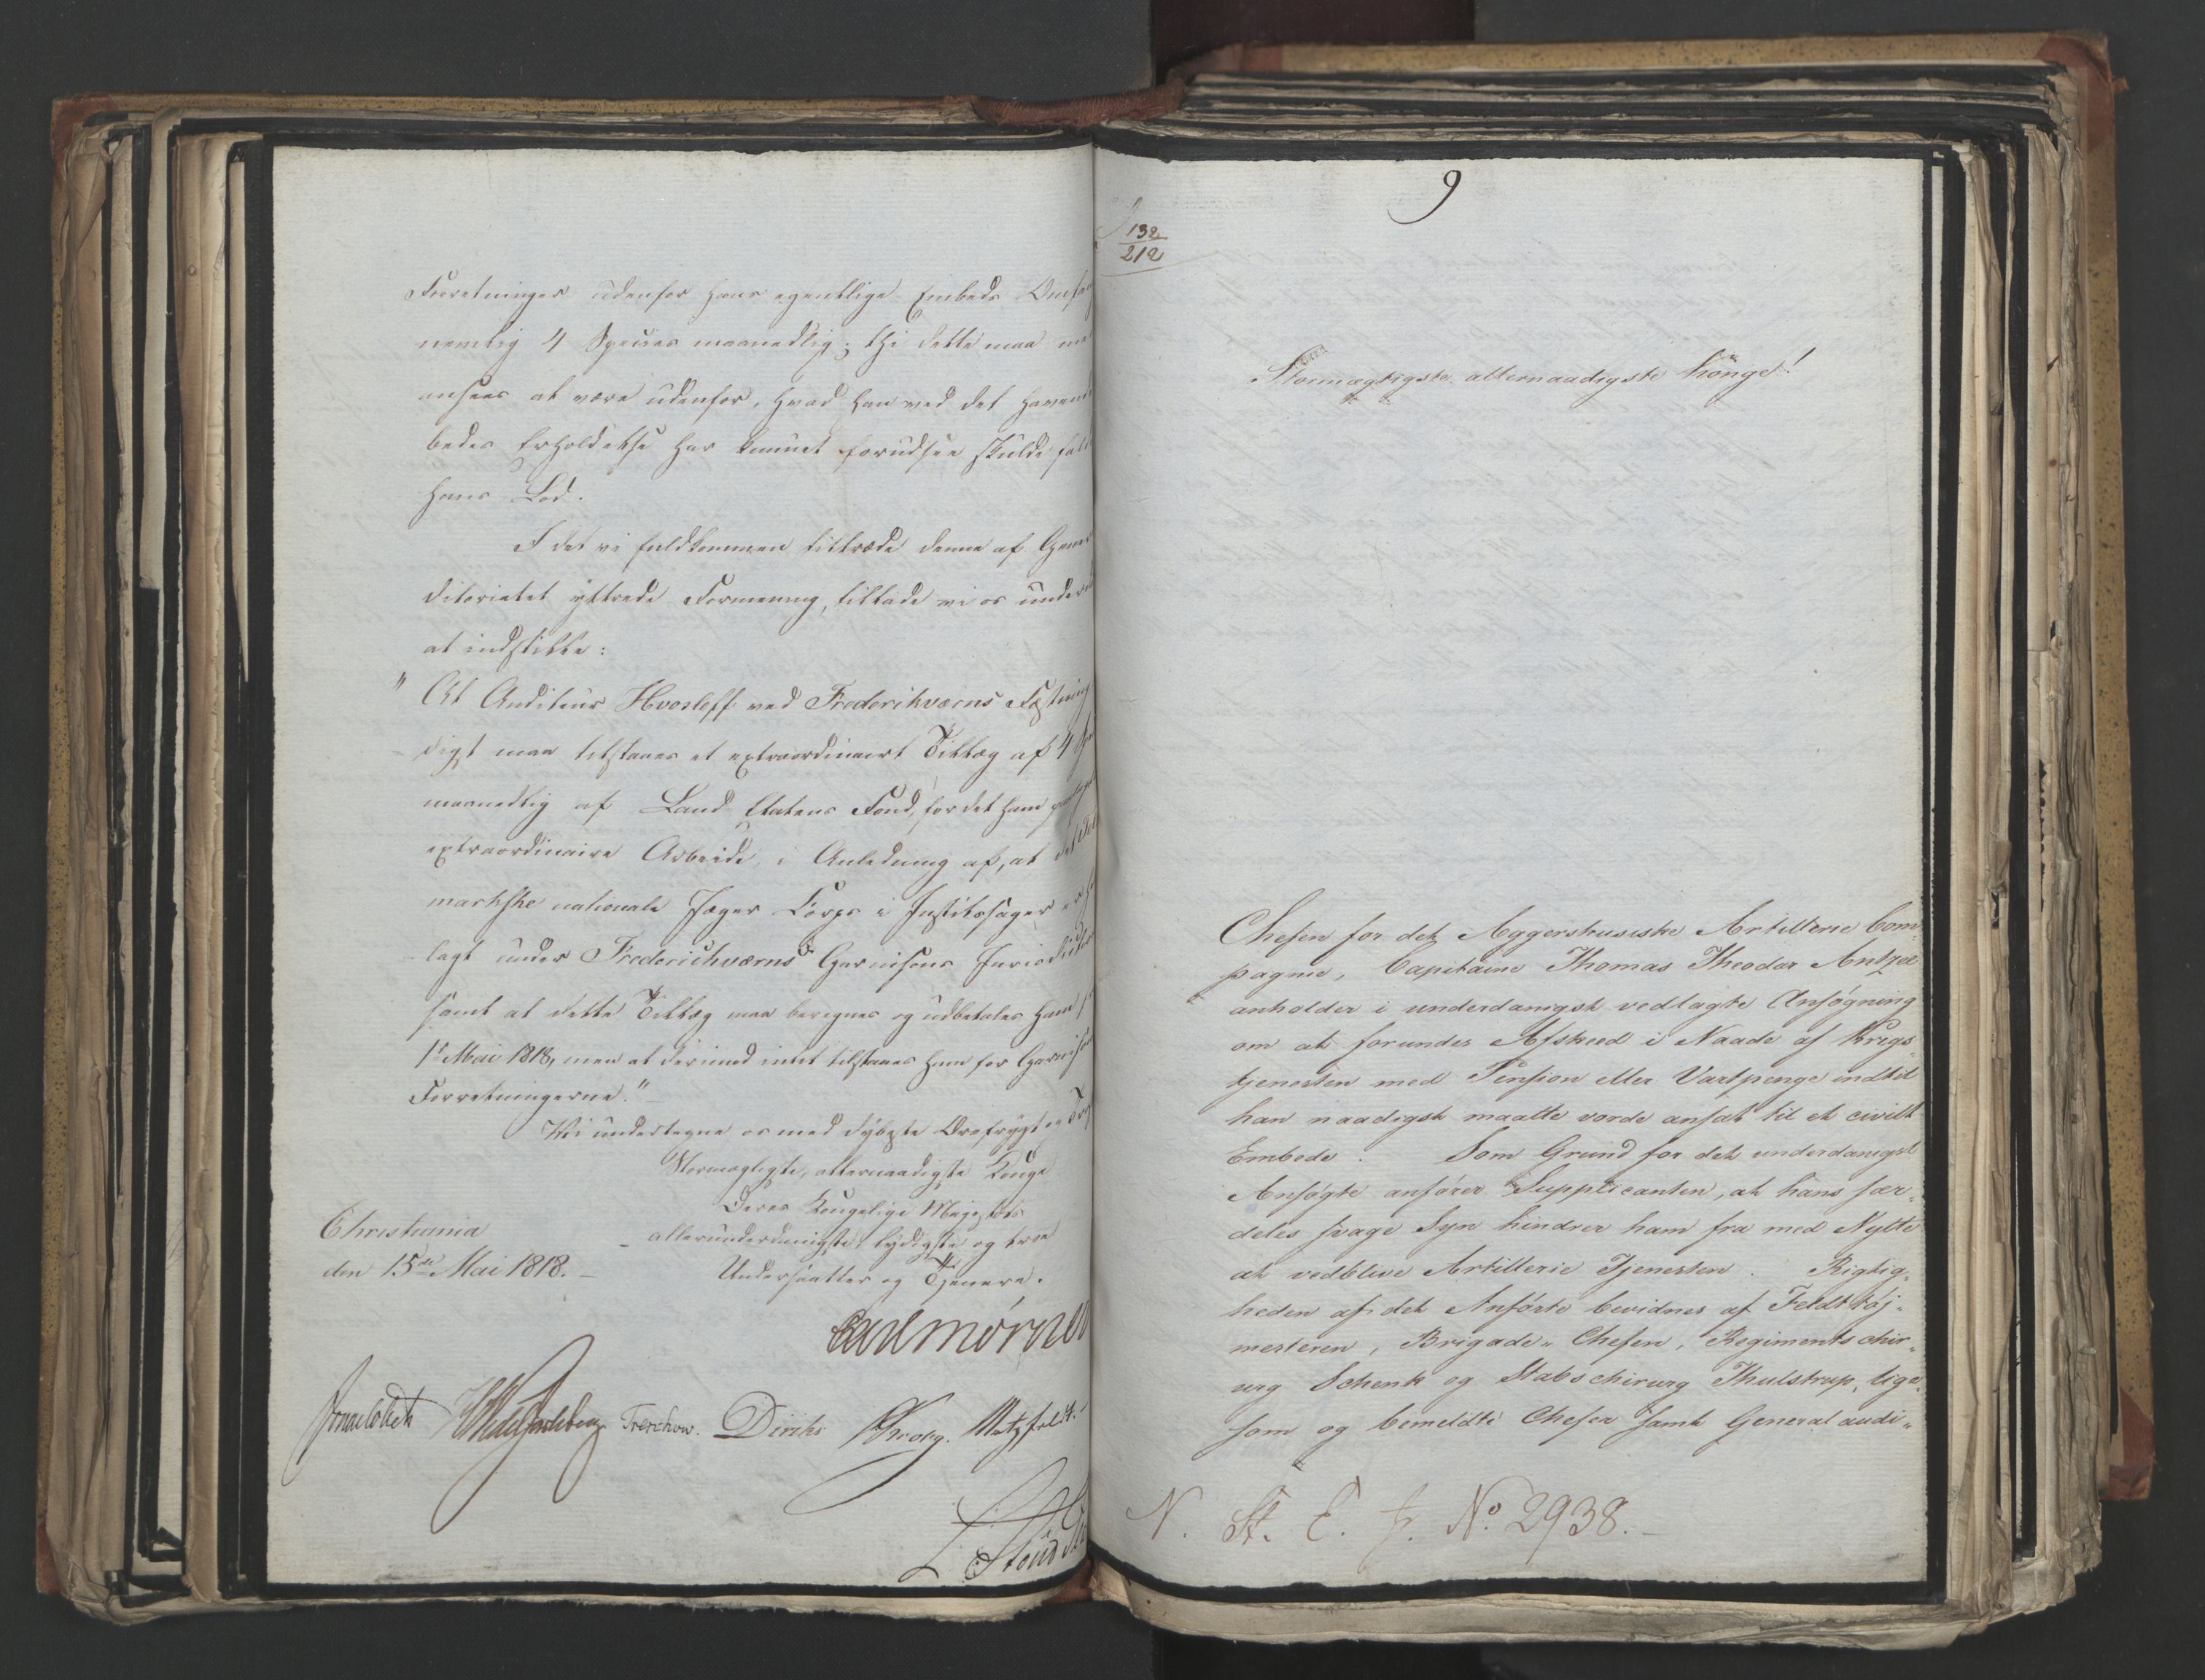 Forretninger udenfor hans egentlige Embeds Omfa
nemlig 4 Species maanedlig; thi dette maa
ansees at være udenfor, hvad han ved det havend
bedes Erholdelse har kunnet forudsee skulde fal
hans Lod.
I det vi fuldkommen tiltræde denne af Gene
ditoriatet yttrede Formening, tillade vi os under
at indstille:
" At Auditeur Hvosleff ved Frederikværns Fæstning
digst maa tilstaaes et extraordinairt Tillæg af 4
maanedlig af Land Etatens Fond, for det ham
extraordinaire Arbeide, i Anledning af, at det
markske nationale Jæger Corps i Justitssager er
lagt under Frederichværns Garnisons Jurisdict
samt at dette Tillæg maa beregnes og udbetales ham
1st Mai 1818, men at derimod intet tilstaaes ham for Garnison
Forretningerne."
Vi undertegne os med dybeste Ærefrygt
Stormægtigste, allernaadigste Konge
Deres Kongelige Majestæts
allerunderdanigste, lydigste og troe
Undersaatter og Tjenere.
Christiania
den 15de Mai 1818.
Carl Mörner
Treschow. Diriks Krog. Motzfeldt.
9
132
212
Stormægtigste allernaadigste Konge!
Chefen for det Aggershusiske Artillerie Com-
pagnie, Capitaine Thomas Theodor Antzée
anholder i underdanigst vedlagte Ansøgning
om at forundes Afskeed i Naade af Krigs
tjenesten med Pension eller Vartpenge indtil
han naadigst maatte vorde ansat til et civilt
Embede. Som Grund for det underdanigst
Ansøgte anfører Supplicanten, at hans sær-
deles svage Syn hindrer ham fra med Nytte
at vedblive Artillerie Tjenesten. Rigtig-
heden af det Anførte bevidnes af Feldttøj-
mesteren, Brigade-Chefen, Regimentschir-
urg Schenk og Stabschirurg Thulstrup, lige-
som og bemeldte Chefer samt Generalaudi-
N. St. E. f. No. 2938.